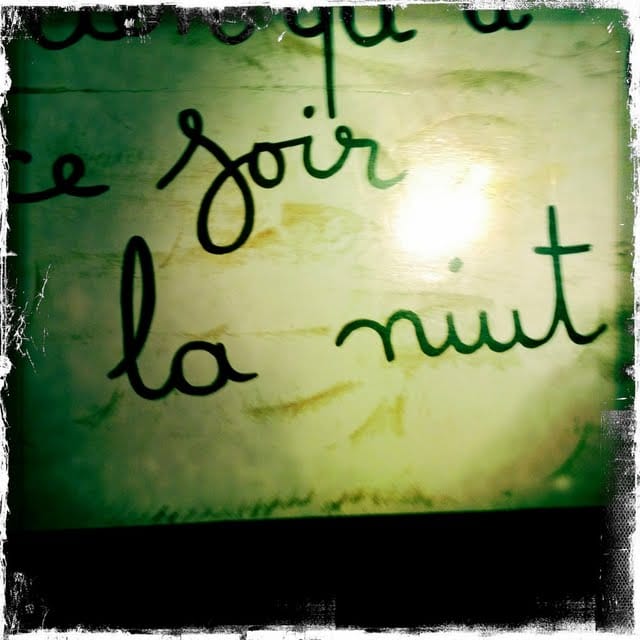 qu'à
ce soir
la nuit